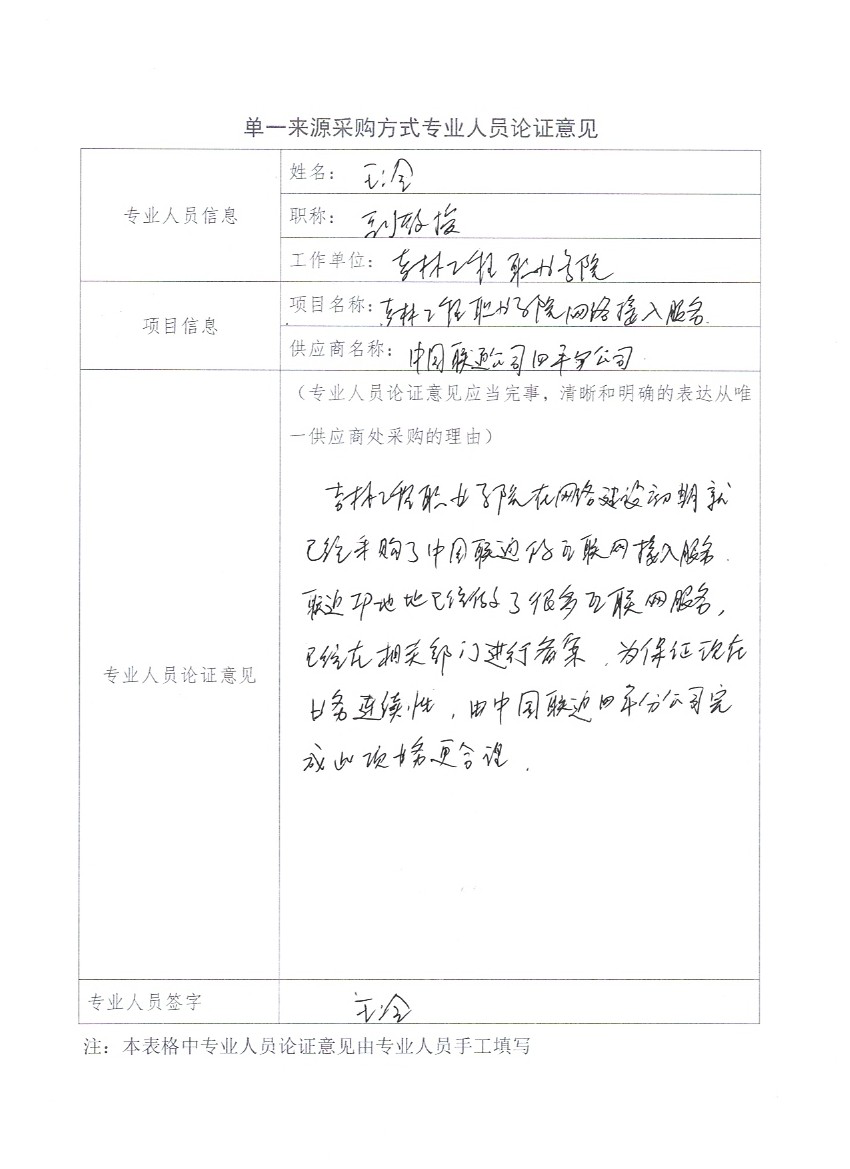 单一来源采购方式专业人员论证意见
专业人员信息
姓名：王
职称：副教授
工作单位：吉林工程职业学院
项目信息
项目名称：吉林工程职业学院网络接入服务.
供应商名称：中国联通公司四平分公司
专业人员论证意见
（专业人员论证意见应当完事，清晰和明确的表达从唯
一供应商处采购的理由）
吉林工程职业学院在网络建设初期就
已经采购了中国联通的互联网接入服务.
联通 地址已经做了很多互联网服务，
已经在相关部门进行备案.为保证现在
业务连续性，由中国联通四平分公司完
成此项业务更合理.
专业人员签字
王
注：本表格中专业人员论证意见由专业人员手工填写